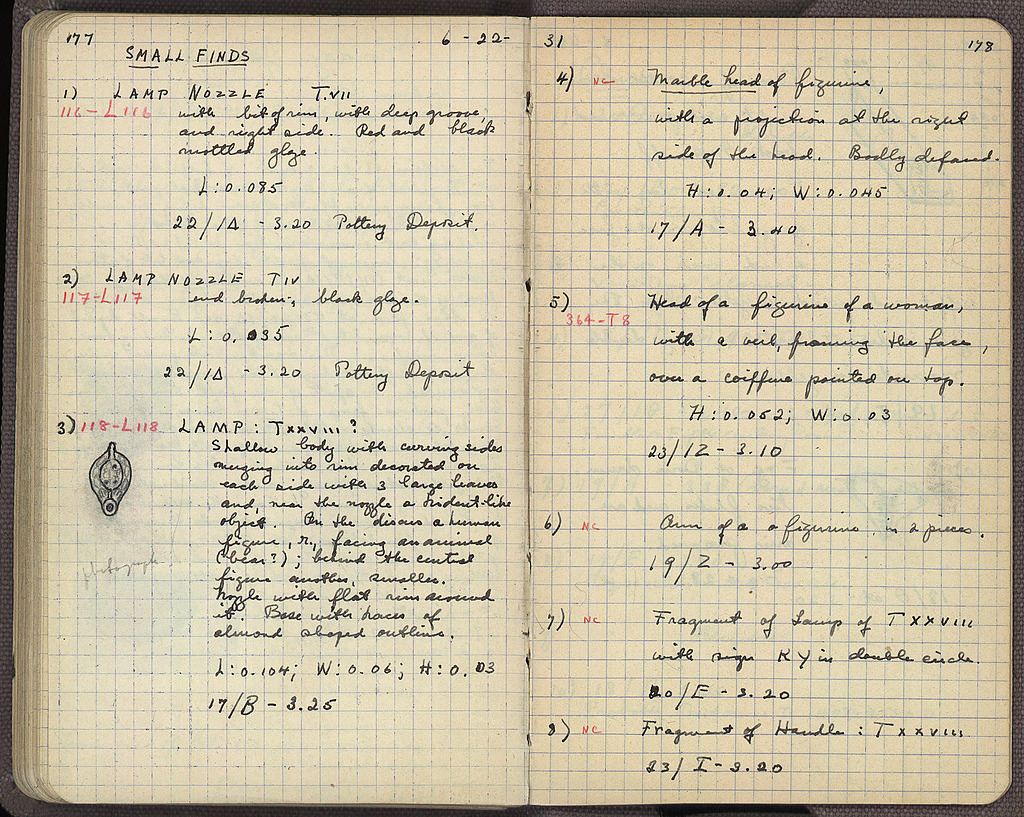 177
6-22-
SMALL FINDS
1) LAMP NOZZLE T.VII
116-L116 with bit of rim, with deep groove,
and right side. Red and black
mottled glaze.
L: 0.085
22/ΙΔ - 3.20 Pottery Deposit.
2) LAMP NOZZLE TIV
117-L117 end broken; black glaze.
L: 0.035
22/ΙΔ - 3.20 Pottery Deposit
3) 118-L118 LAMP: TXXVIII?
Shallow body with curving sides
merging into rim decorated on
each side with 3 large leaves
and, near the nozzle a trident-like
object. On the discus a human
figure, r., facing an animal
(bear?); behind the central
figure another, smaller.
Nozzle with flat rim around
it. Base with traces of
almond shaped outline.
photograph
L: 0.104; W: 0.06; H: 0.03
17/B - 3.25
31
178
4) NC Marble head of figurine,
with a projection at the right
side of the head. Badly defaced.
H: 0.04; W: 0.045
17/A - 3.40
5) Head of a figurine of a woman,
364-T8
with a veil, framing the face,
over a coiffure pointed on top.
H: 0.052; W: 0.03
23/ΙΖ - 3.10
6) NC Arm of a figurine in 2 pieces.
19/Z - 3.00
7) NC Fragment of Lamp of TXXVIII
with sign KY in double circle.
20/E - 3.20
8) NC Fragment of Handle: TXXVIII
23/I - 3.20